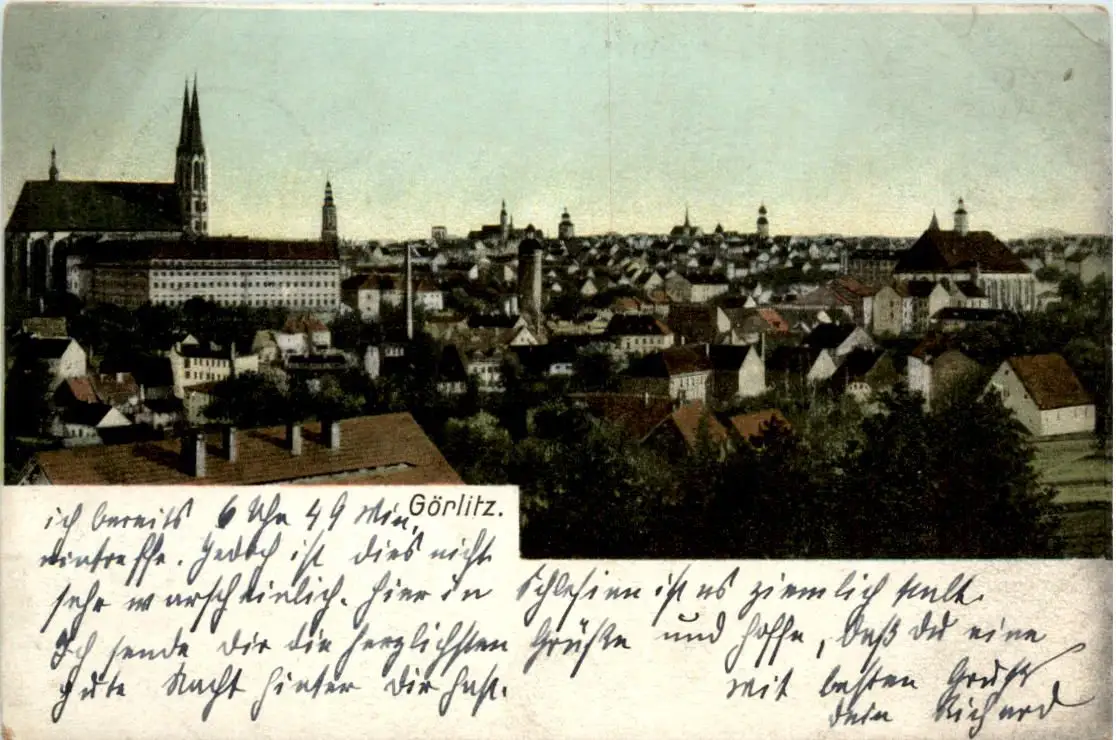 Görlitz.
ich bereits 6 Uhr 49 Min.
eintreffe. Jedoch ist dies nicht
sehr warscheinlich. Hier in Schlesien ist es ziemlich kalt.
Ich sende Dir die herzlichsten Grüße und hoffe, daß du eine
gute Nacht hinter Dir hast. Mit besten Gruß
dein Richard